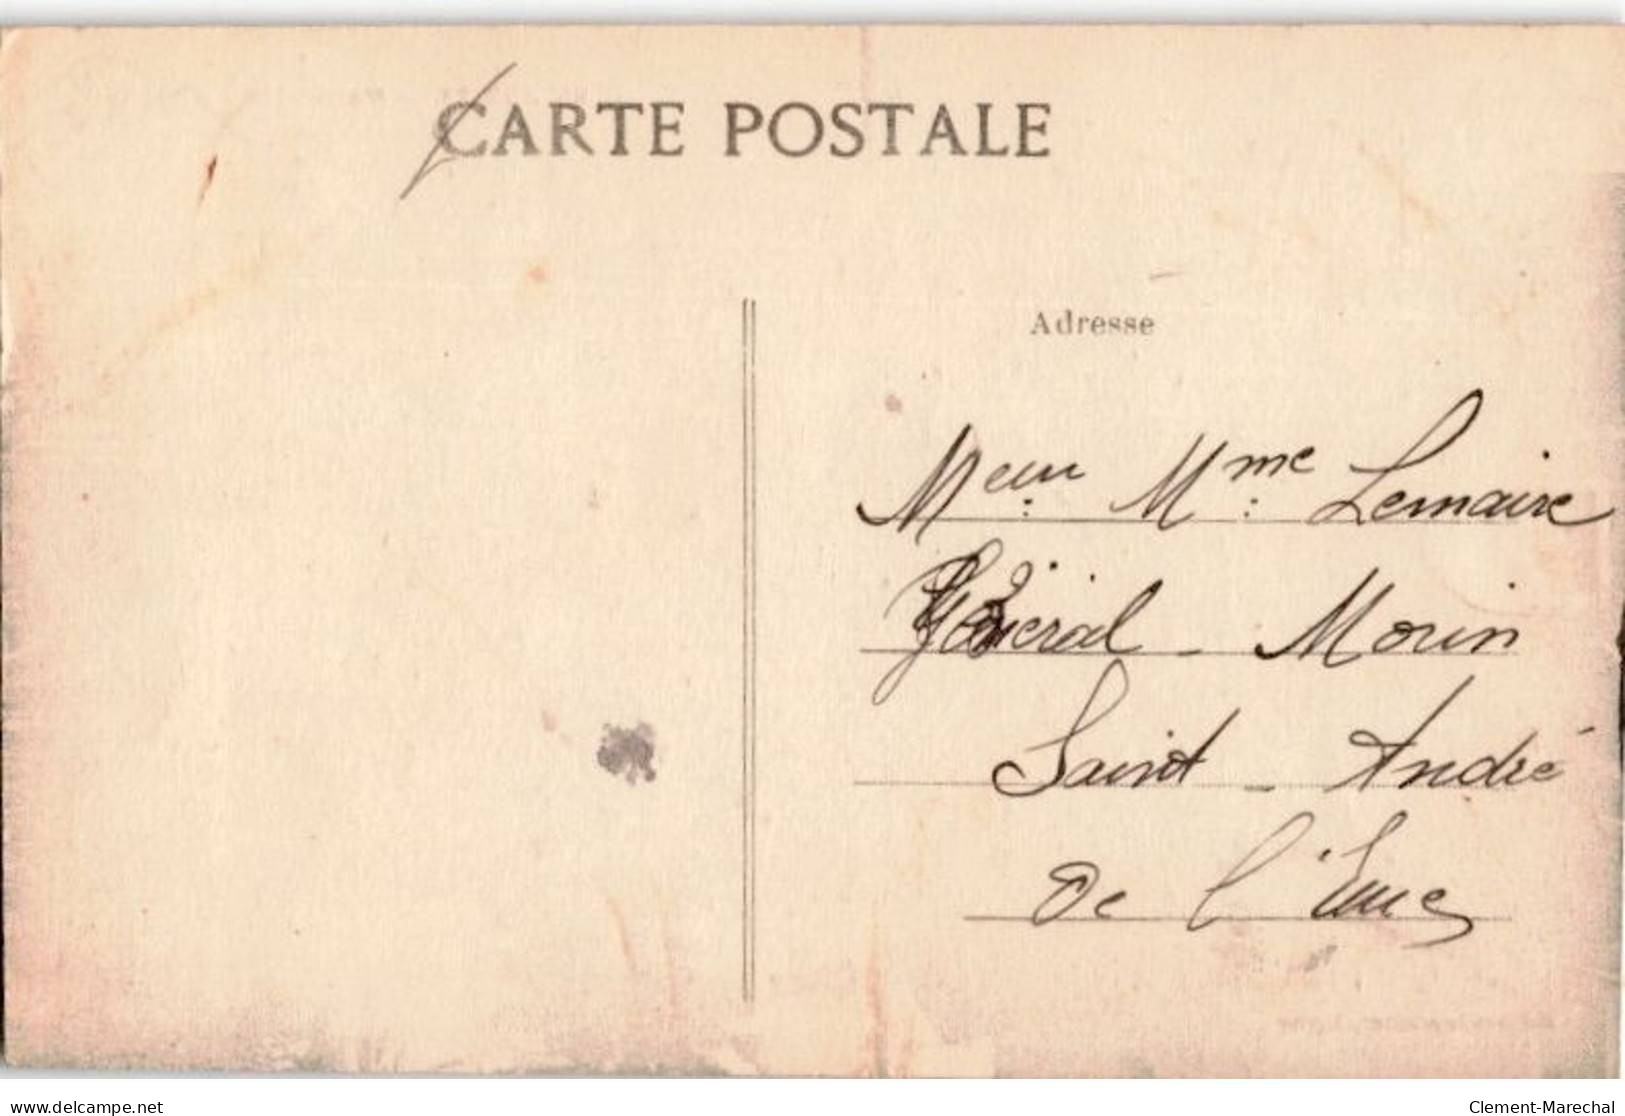 CARTE POSTALE
Adresse
Meur Mme Lemaire
Général - Morin
Saint - André
De l'Eure
delcampe.net
Clement-Marechal